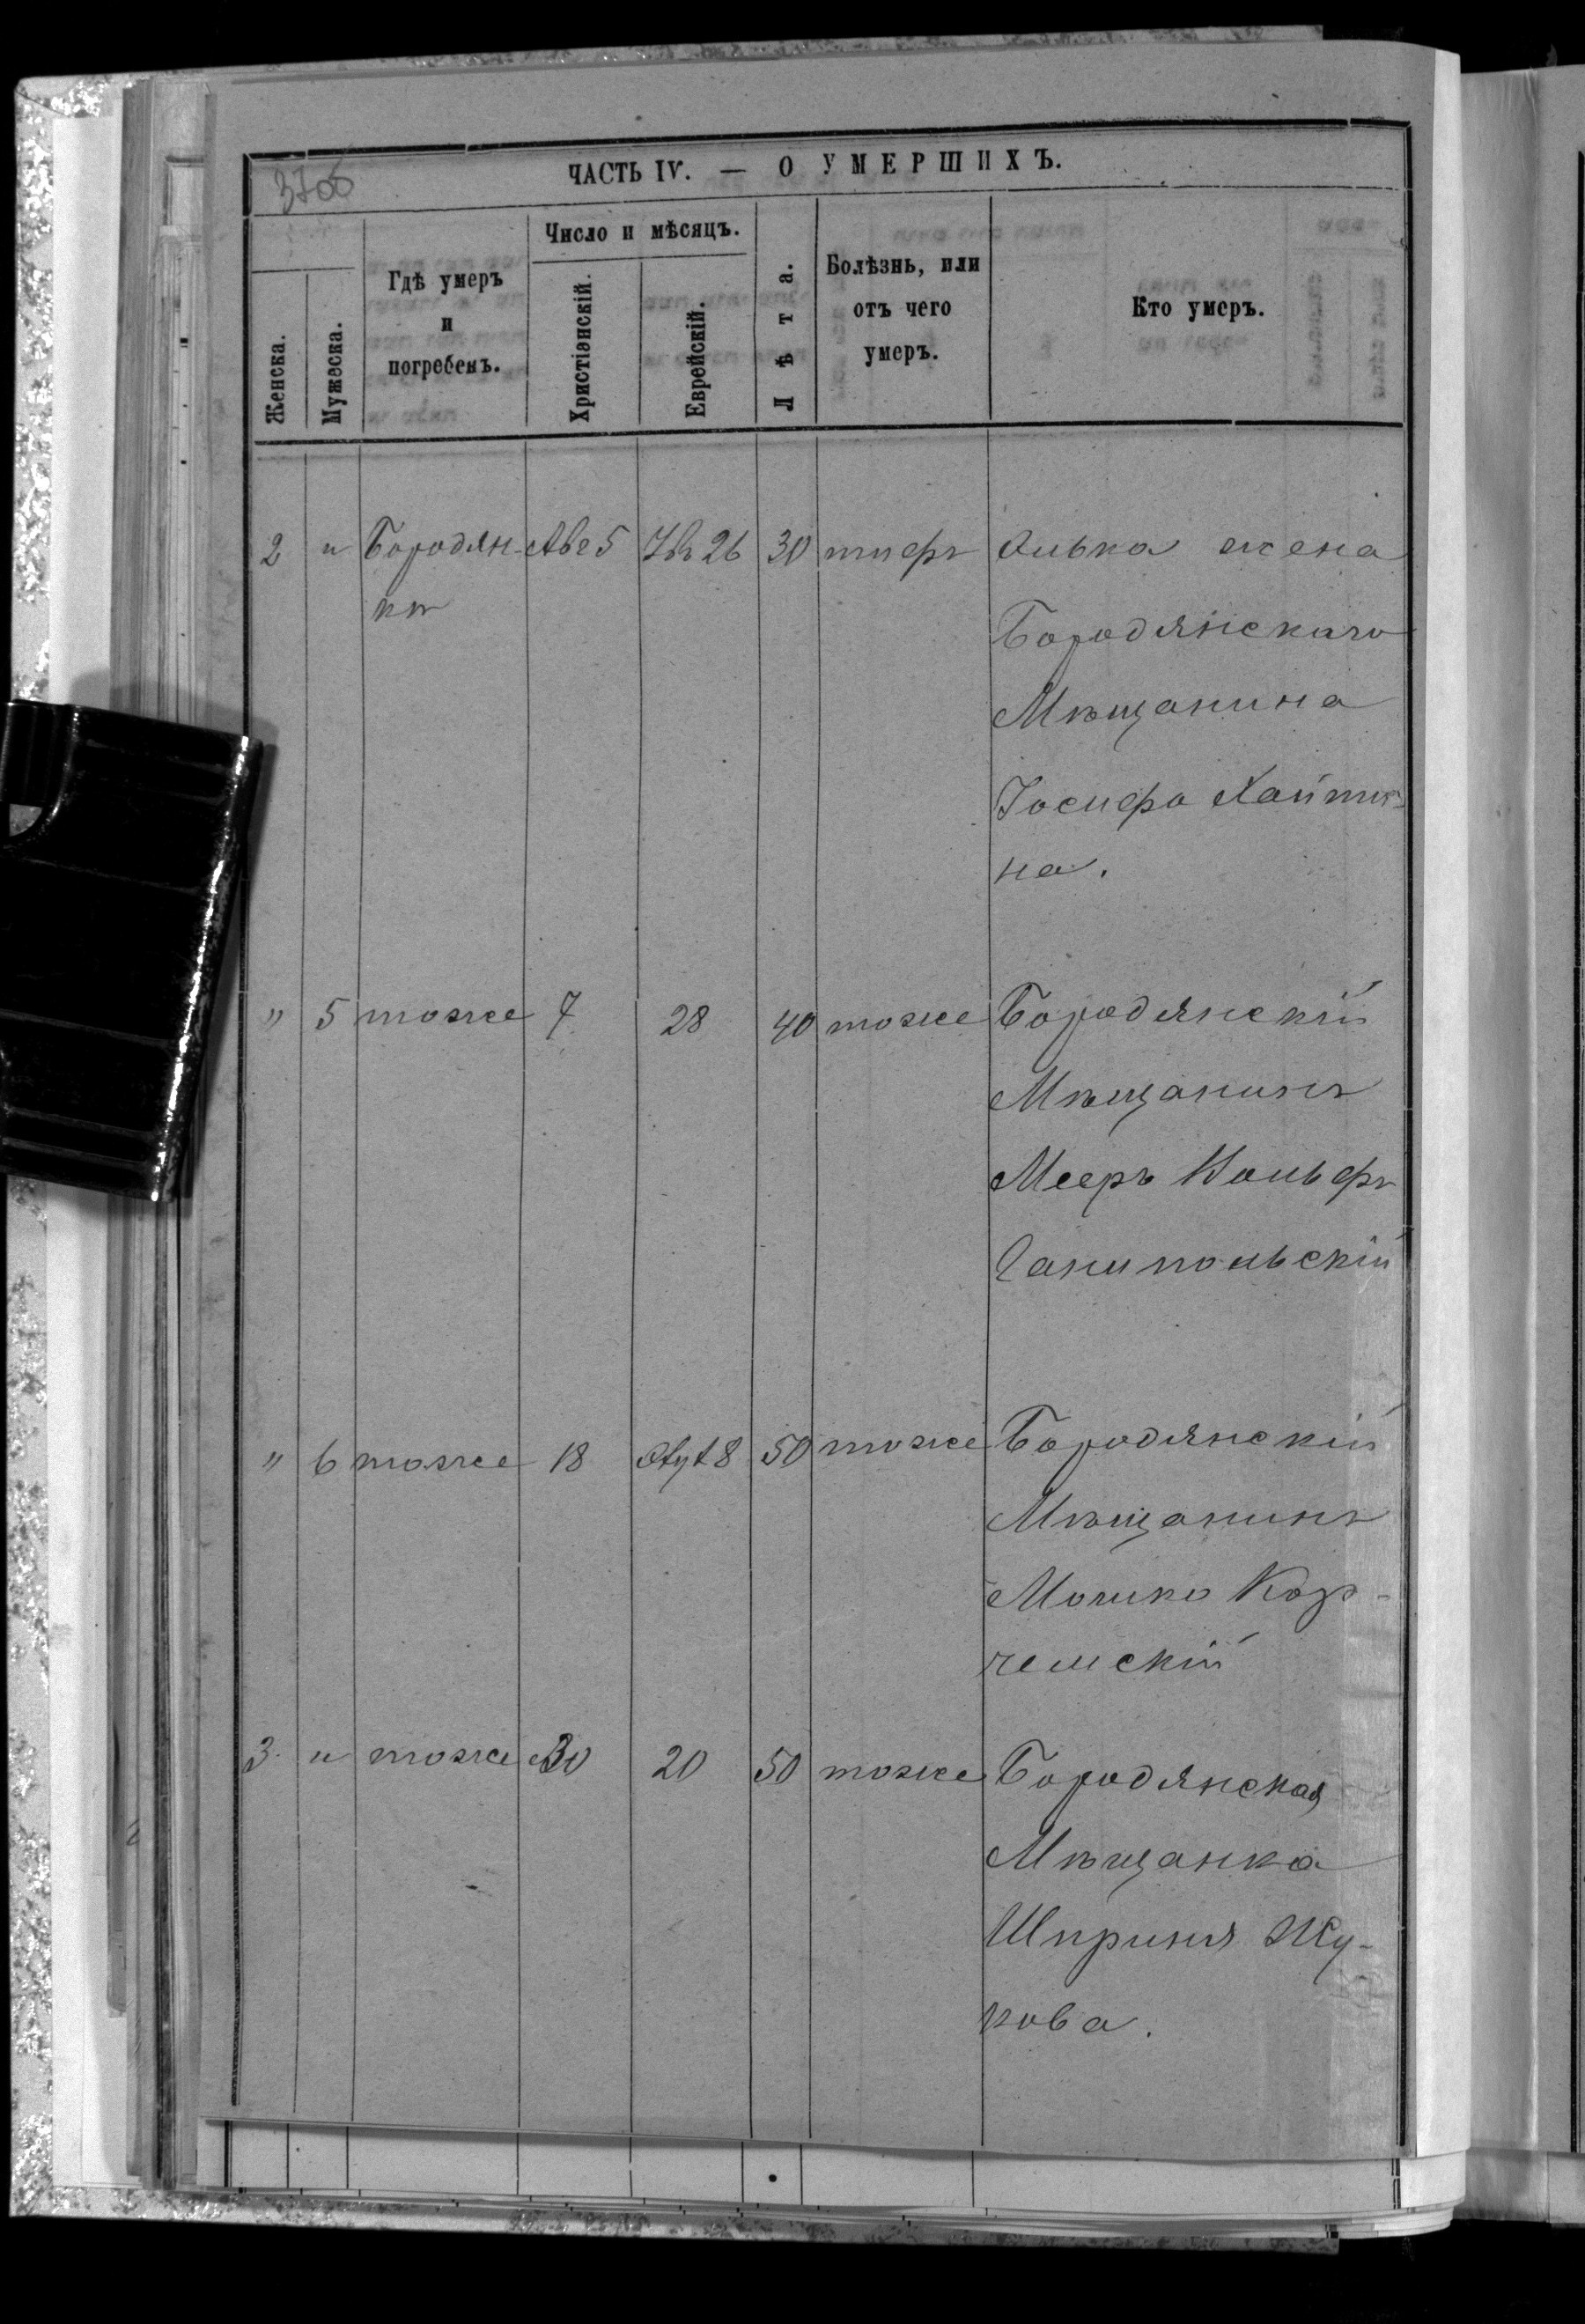 3706
ЧАСТЬ IV. — О УМЕРШИХЪ.
Женска.
Мужеска.
Гдѣ умеръ
и
погребенъ.
Число и мѣсяцъ.
Христіанскій.
Еврейскій.
Лѣта.
Болѣзнь, или
отъ чего
умеръ.
Кто умеръ.
2 " Бородян- Авг 5 26 30 тифъ жена
кѣ
Бородянскаго
Мѣщанина
Іосифа Хайти-
на.
" 5 тоже 7 28 40 тоже Бородянскій
Мѣщанинъ
Мееръ Вольфъ
Ганипольскій
" 6 тоже 18 8 50 тоже Бородянскій
Мѣщанинъ
Мошко Кор-
чемскій
3 " тоже 30 20 50 тоже Бородянская
Мѣщанка
Шприня Жу-
кова.